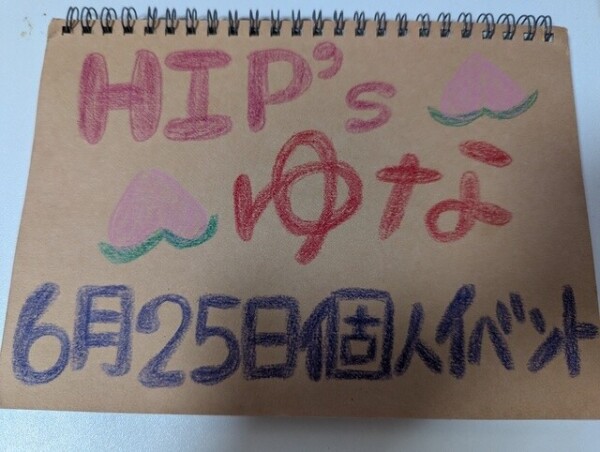 HIP's
ゆな
6月25日個人イベント